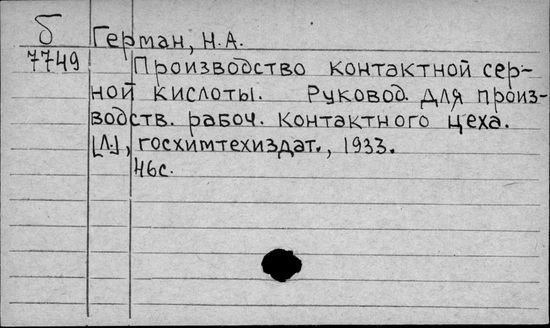 Б Герман, Н.А.
7749 Производство контактной сер-
ной кислоты. Руковод. для произ-
водств. рабоч. контактного цеха.
[Л.], госхимтехиздат., 1933.
46с.